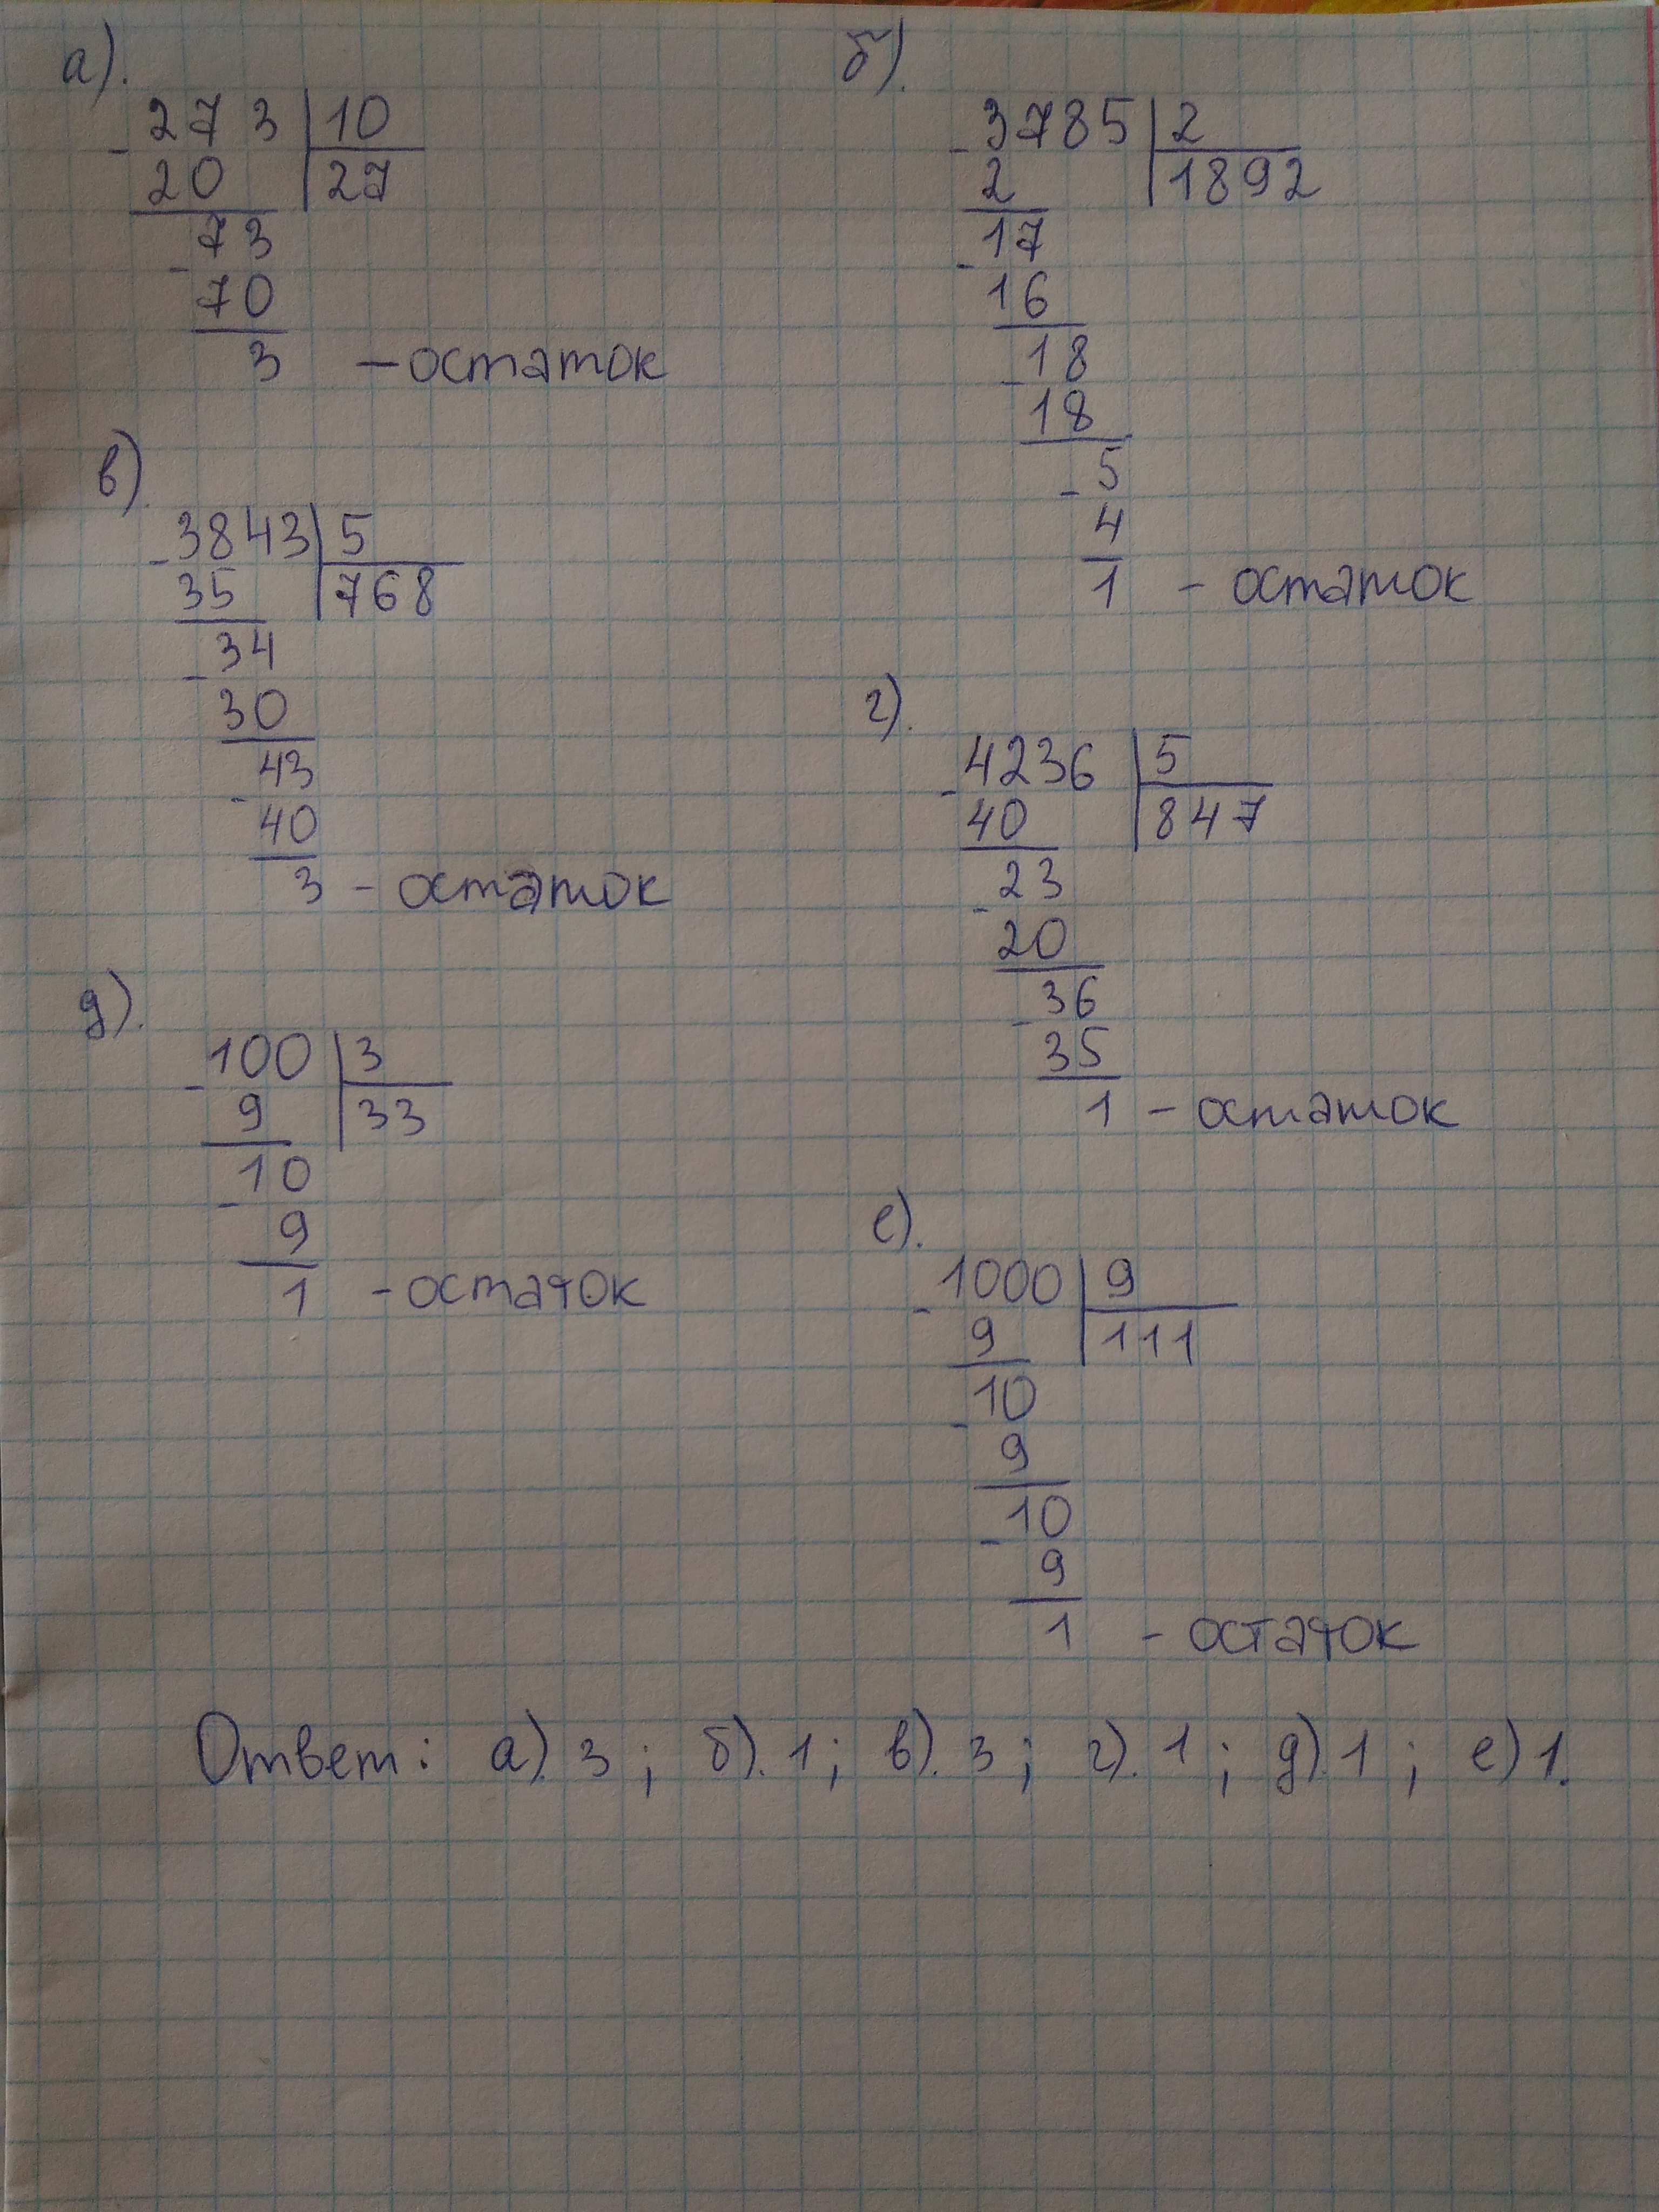 а).
- 273 | 10
20 | 27
- 73
70
3 - остаток
б).
- 3785 | 2
2 | 1892
- 17
16
- 18
18
- 5
4
1 - остаток
в).
- 3843 | 5
35 | 768
- 34
30
- 43
40
3 - остаток
г).
- 4236 | 5
40 | 847
- 23
20
- 36
35
1 - остаток
д).
- 100 | 3
9 | 33
- 10
9
1 - остаток
е).
- 1000 | 9
9 | 111
- 10
9
- 10
9
1 - остаток
Ответ: а). 3; б). 1; в). 3; г). 1; д). 1; е) 1.